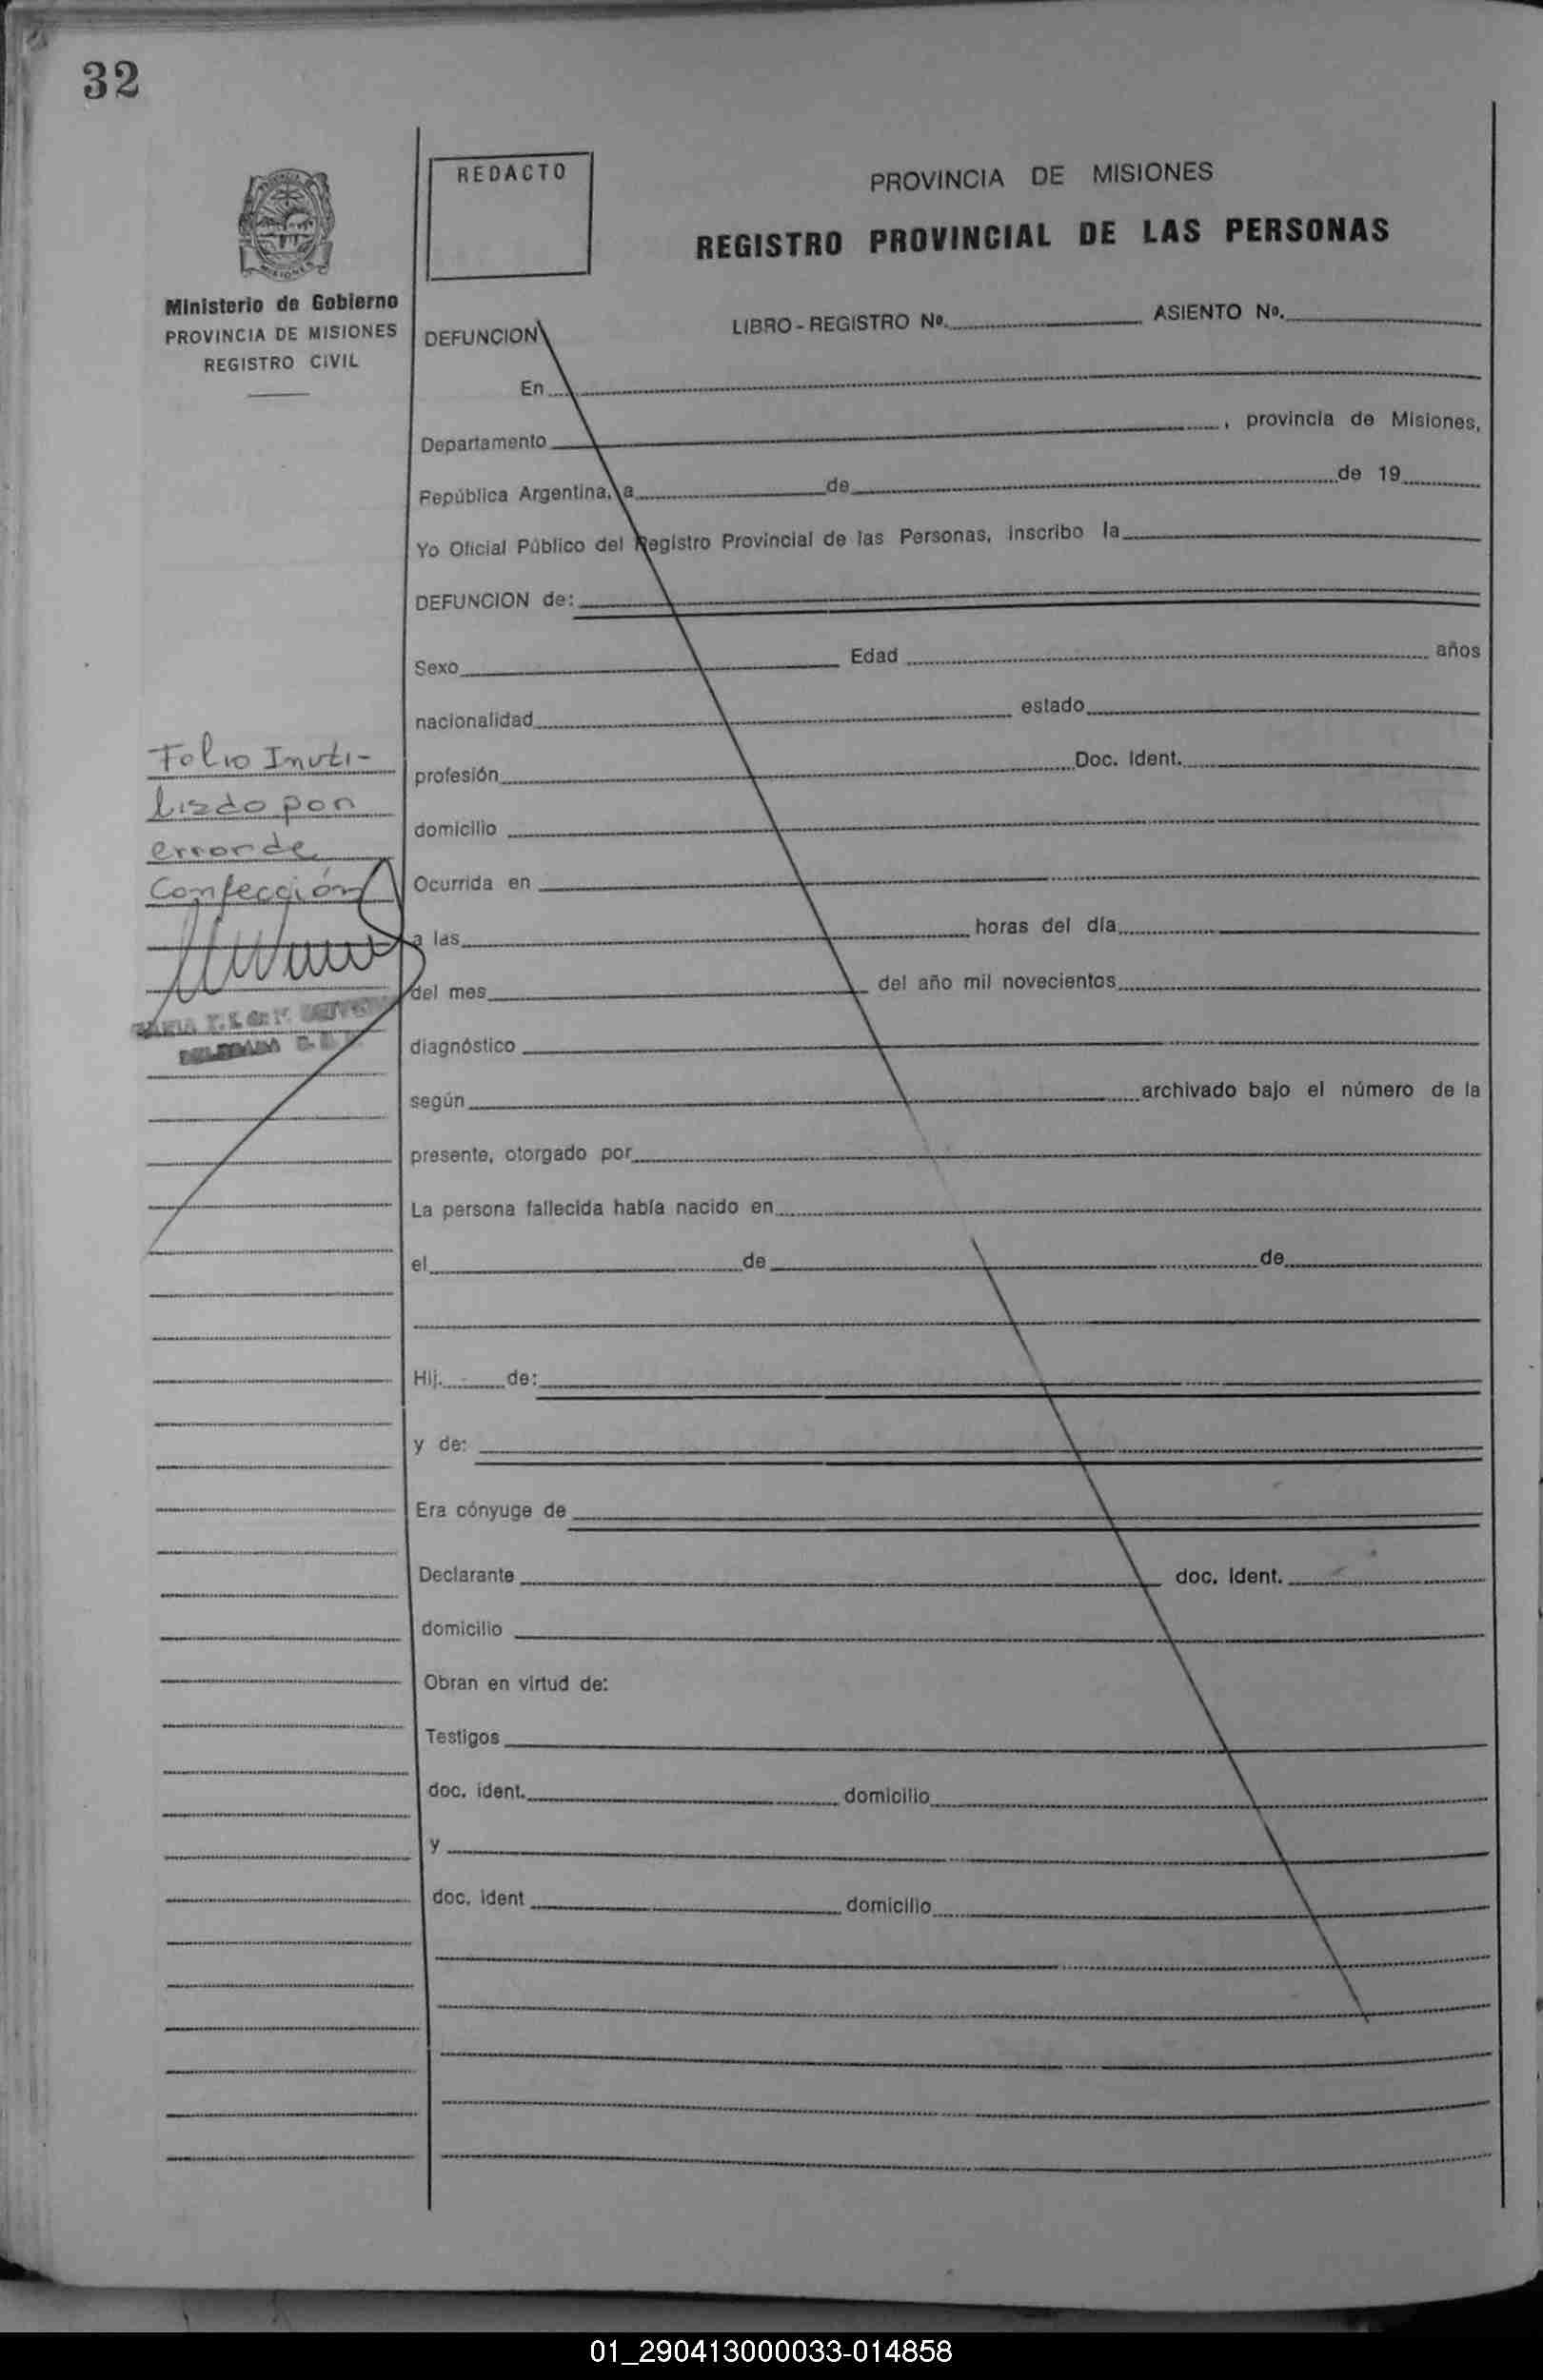 32
REDACTO
PROVINCIA DE MISIONES
REGISTRO PROVINCIAL DE LAS PERSONAS
Ministerio de Gobierno
PROVINCIA DE MISIONES
REGISTRO CIVIL
LIBRO - REGISTRO Nº. ASIENTO Nº.
DEFUNCION
En
Departamento , provincia de Misiones,
República Argentina, a de de 19
Yo Oficial Público del Registro Provincial de las Personas, inscribo la
DEFUNCION de:
Sexo Edad años
nacionalidad estado
profesión Doc. Ident.
domicilio
Ocurrida en
a las horas del día
del mes del año mil novecientos
diagnóstico
según archivado bajo el número de la
presente, otorgado por
La persona fallecida había nacido en
el de de
Hij. de:
y de:
Era cónyuge de
Declarante doc. Ident.
domicilio
Obran en virtud de:
Testigos
doc. ident. domicilio
y
doc. ident domicilio
Folio Inuti-
lizdo por
error de
Confección
DELEGADA
01_290413000033-014858